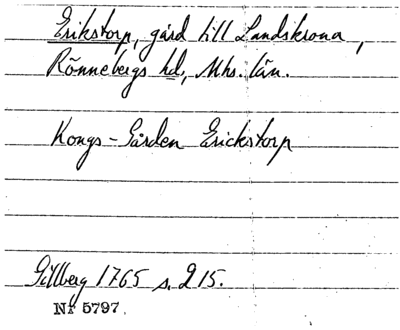 Erikstorp, gård till Landskrona,
Rönnebergs hd, Mhs. län.
Kongs-Gården Erickstorp
Gillberg 1765 s. 215.
Nr 5797.